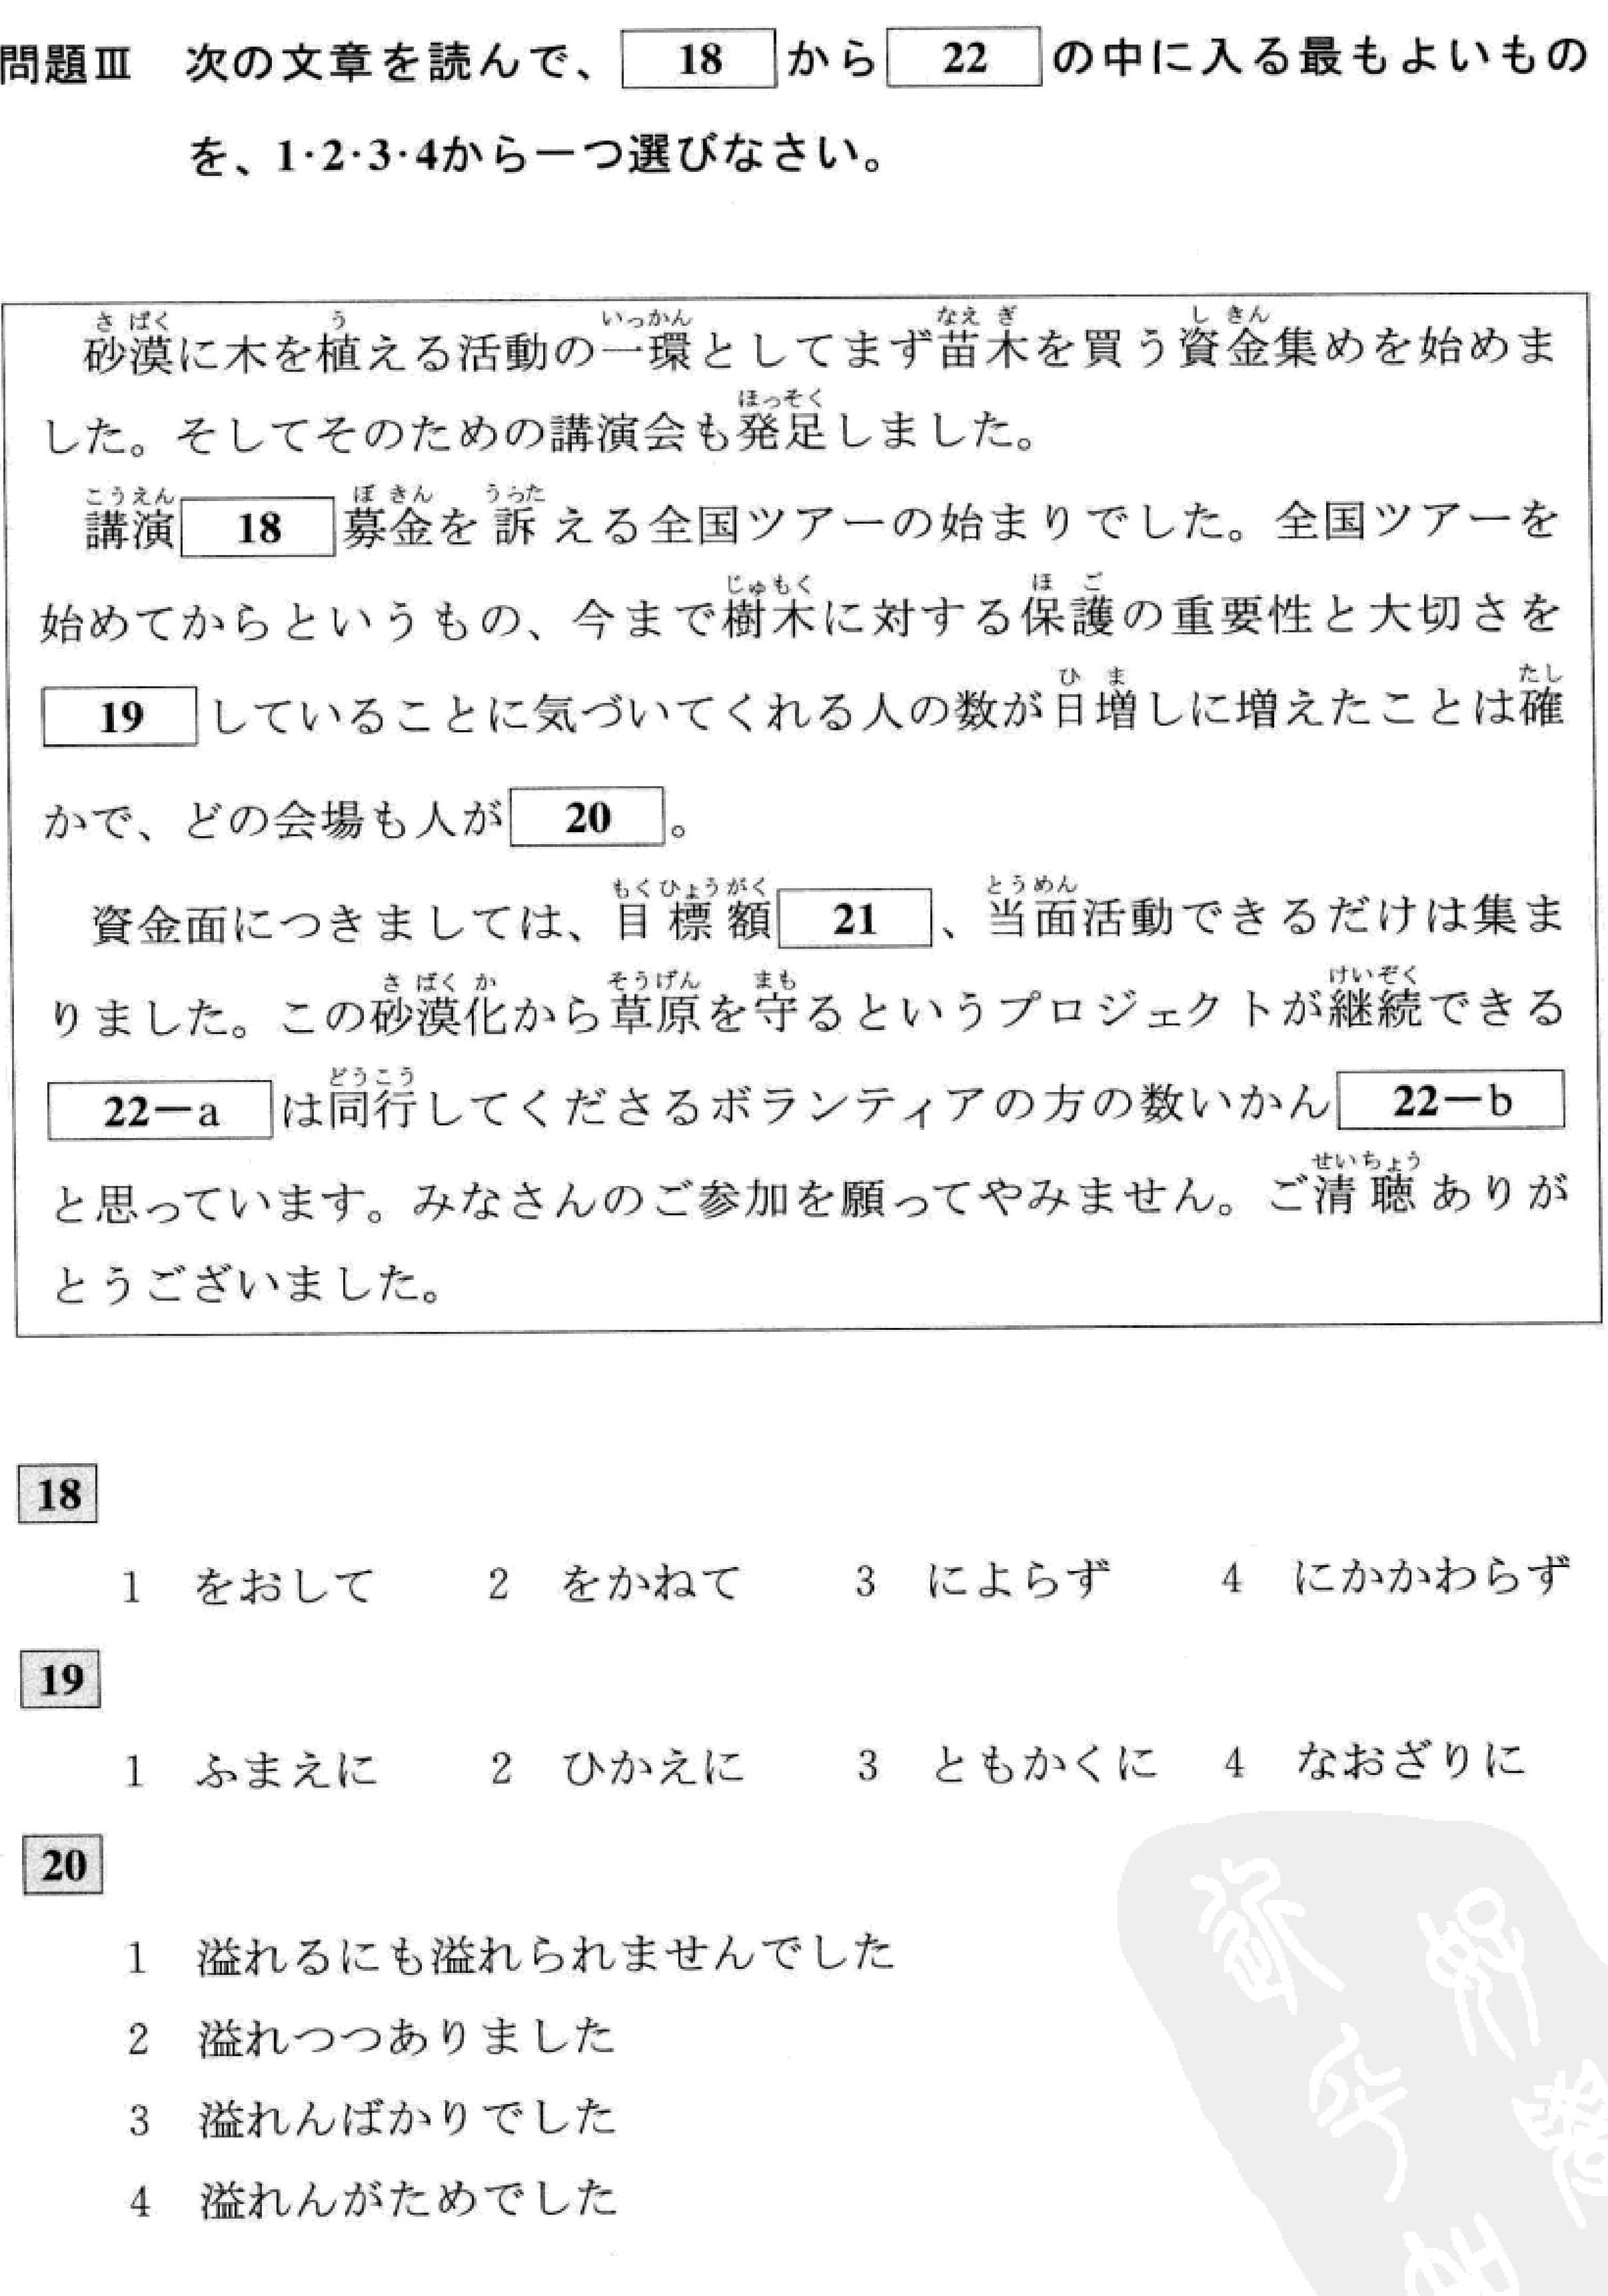 問題Ⅲ 次の文章を読んで、 18 から 22 の中に入る最もよいもの
を、1·2·3·4から一つ選びなさい。
砂漠に木を植える活動の一環としてまず苗木を買う資金集めを始めま
した。そしてそのための講演会も発足しました。
講演 18 募金を訴える全国ツアーの始まりでした。全国ツアーを
始めてからというもの、今まで樹木に対する保護の重要性と大切さを
19 していることに気づいてくれる人の数が日増しに増えたことは確
かで、どの会場も人が 20 。
資金面につきましては、目標額 21 、当面活動できるだけは集ま
りました。この砂漠化から草原を守るというプロジェクトが継続できる
22－a は同行してくださるボランティアの方の数いかん 22－b
と思っています。みなさんのご参加を願ってやみません。ご清聴ありが
とうございました。
18
1 をおして 2 をかねて 3 によらず 4 にかかわらず
19
1 ふまえに 2 ひかえに 3 ともかくに 4 なおざりに
20
1 溢れるにも溢れられませんでした
2 溢れつつありました
3 溢れんばかりでした
4 溢れんがためでした